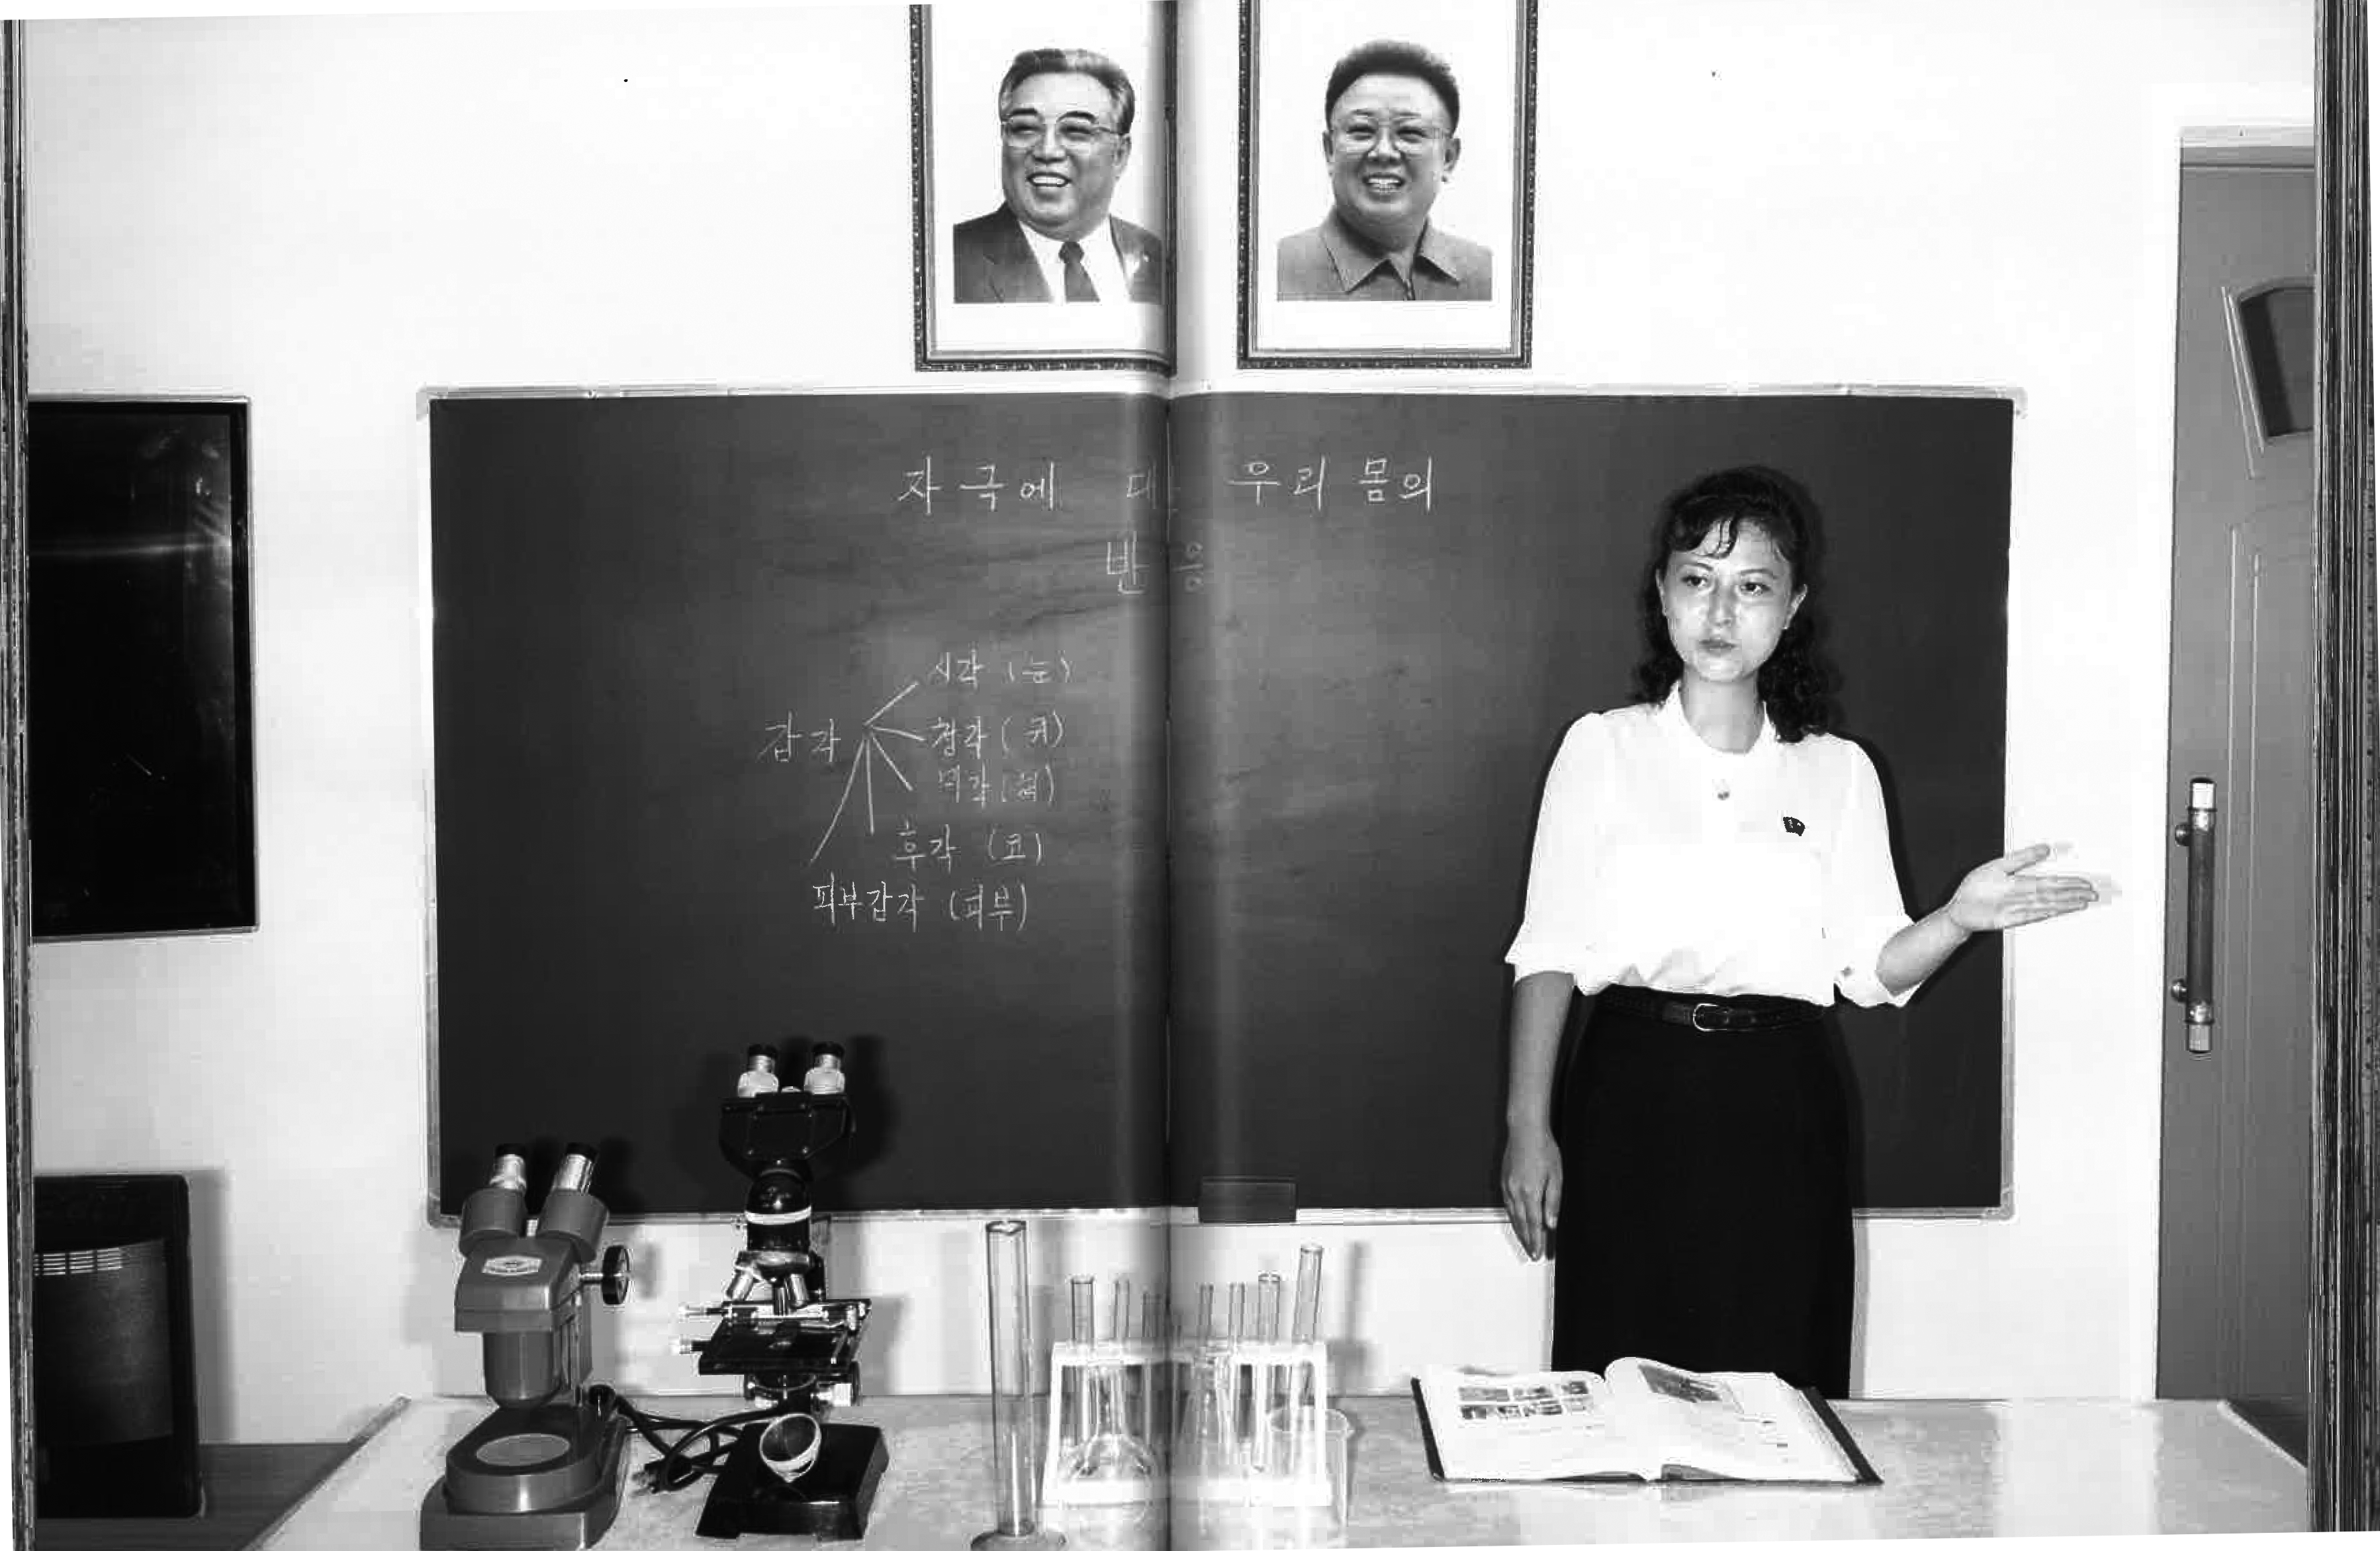 자극에 대한 우리 몸의
반응
시각 (눈)
감각 청각 (귀)
미각 (혀)
후각 (코)
피부감각 (피부)